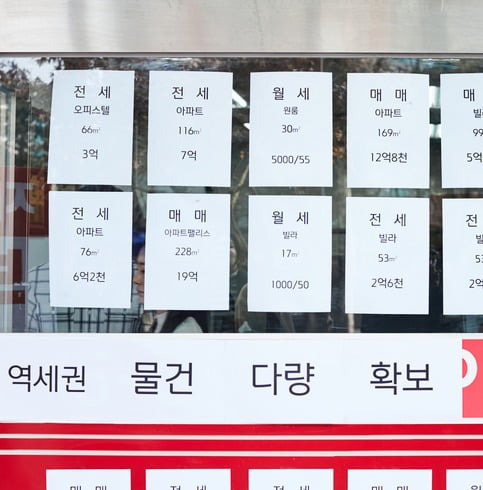 전 세
오피스텔
66㎡
3억
전 세
아파트
116㎡
7억
월 세
원룸
30㎡
5000/55
매 매
아파트
169㎡
12억8천
전 세
아파트
76㎡
6억2천
매 매
아파트팰리스
228㎡
19억
월 세
빌라
17㎡
1000/50
전 세
빌라
53㎡
2억6천
역세권 물건 다량 확보
매 매
전 세
전 세
매 매